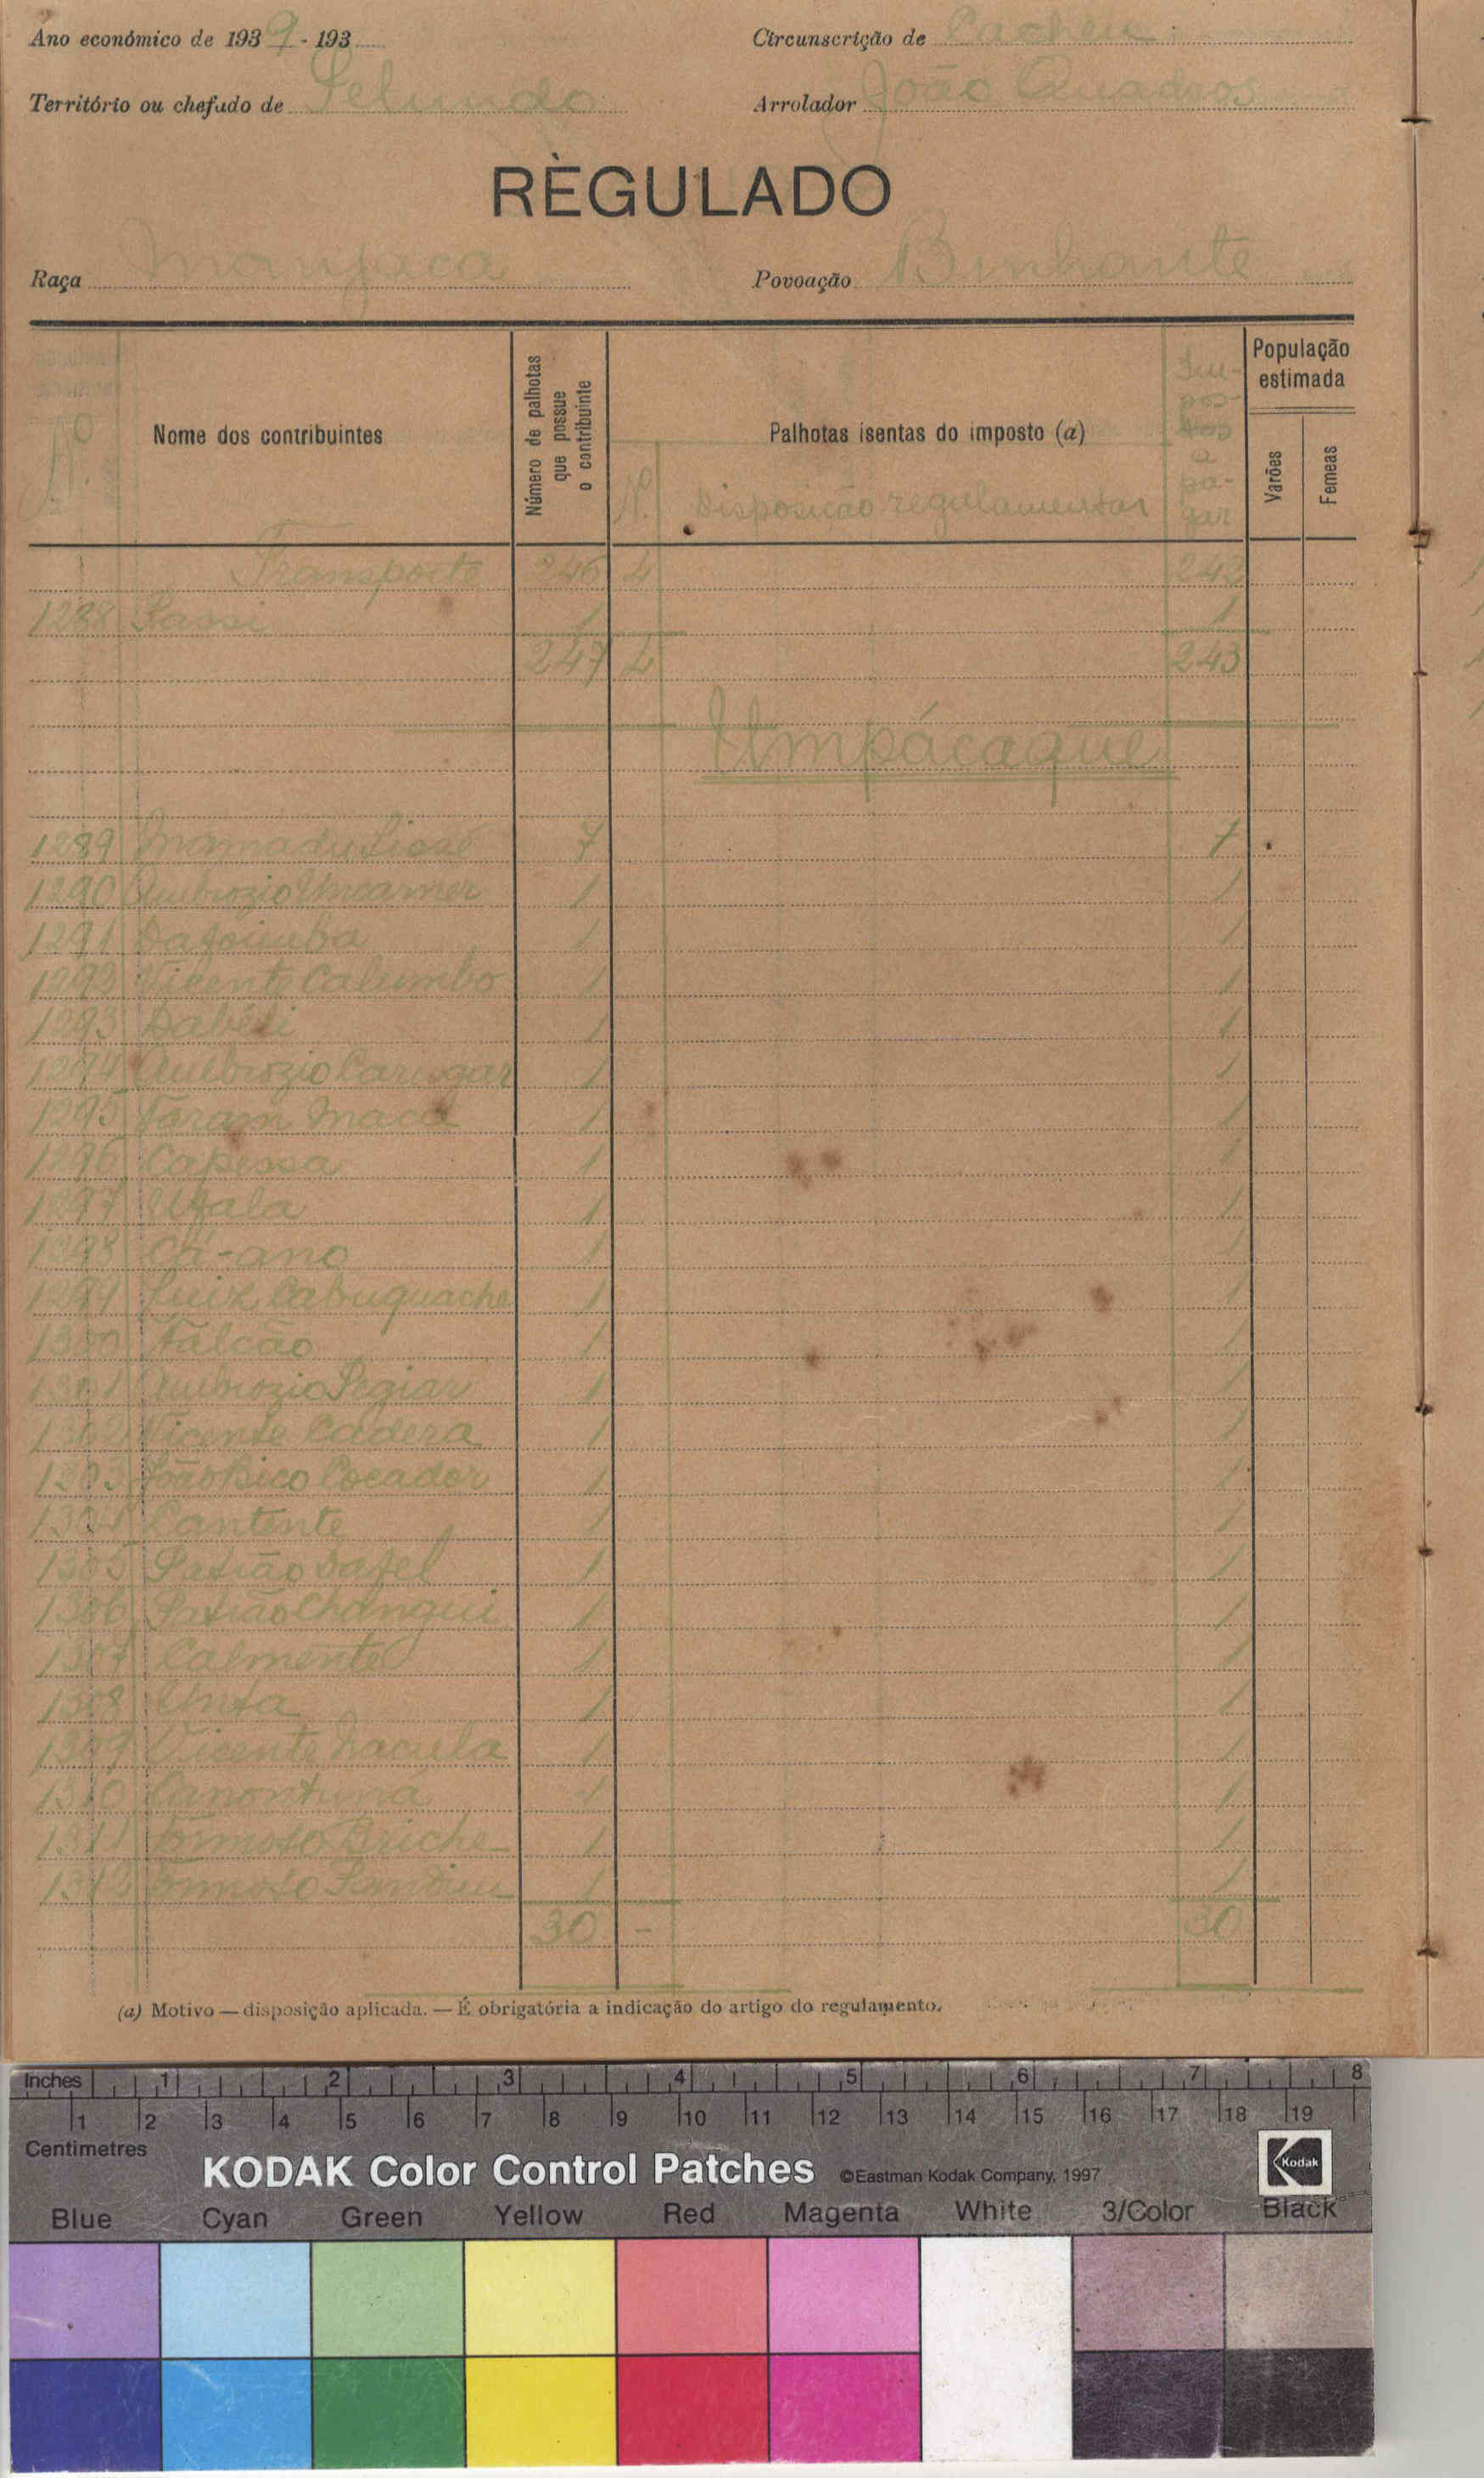 Ano económico de 1939 - 193
Circunscrição de Cacheu
Território ou chefado de Pelundo
Arrolador João Quadros
RÈGULADO
Raça Manjaca
Povoação Binhante
N.º
Nome dos contribuintes
Número de palhotas que possue o contribuinte
Palhotas isentas do imposto (a)
N.º
Disposição regulamentar
Impostos a pagar
População estimada
Varões
Femeas
Transporte 246 4 242
1288 Sassi 1 1
247 4 243
Umpácaque
1289 Mamadu Sissé 7 7
1290 Ambrozio Uncarner 1 1
1291 1 1
1292 Vicente Calumbo 1 1
1293 1 1
1294 Ambrozio 1 1
1295 Maca 1 1
1296 Capessa 1 1
1297 Ufala 1 1
1298 Cá-ano 1 1
1299 Luiz Cabuquache 1 1
1300 Falcão 1 1
1301 Ambrozio Segiar 1 1
1302 Vicente Cadera 1 1
1303 João Bico Cocador 1 1
1304 Cantente 1 1
1305 Patrão Dafel 1 1
1306 Patrão Changui 1 1
1307 Calmente 1 1
1308 Unta 1 1
1309 Vicente Nacula 1 1
1310 Canontuna 1 1
1311 Briche 1 1
1312 1 1
30 - 30
(a) Motivo — disposição aplicada. — É obrigatória a indicação do artigo do regulamento.
Inches 1 2 3 4 5 6 7 8
1 2 3 4 5 6 7 8 9 10 11 12 13 14 15 16 17 18 19
Centimetres
KODAK Color Control Patches ©Eastman Kodak Company, 1997 Kodak
Blue Cyan Green Yellow Red Magenta White 3/Color Black